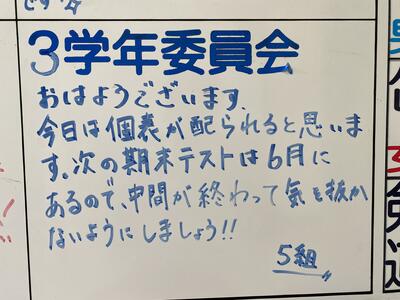 です☆
3学年委員会
おはようございます。
今日は個表が配られると思いま
す。次の期末テストは6月に
あるので、中間が終わって気を抜か
ないようにしましょう!!
5組